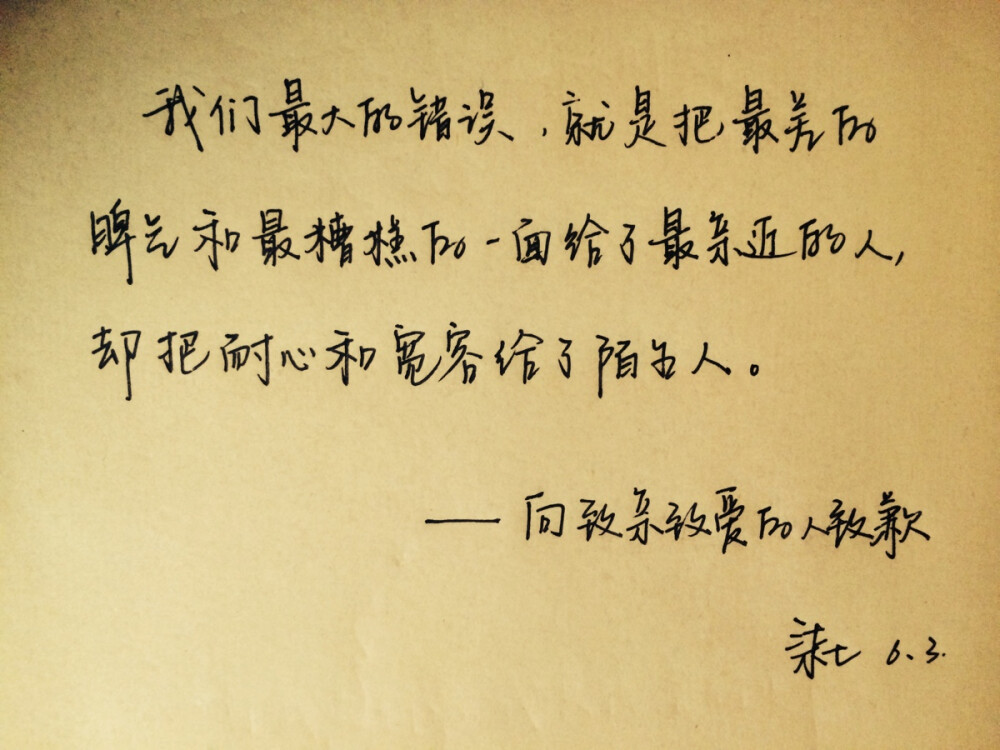 我们最大的错误，就是把最差的
脾气和最糟糕的一面给了最亲近的人，
却把耐心和宽容给了陌生人。
——向致亲致爱的人致歉
柒七 6.3.